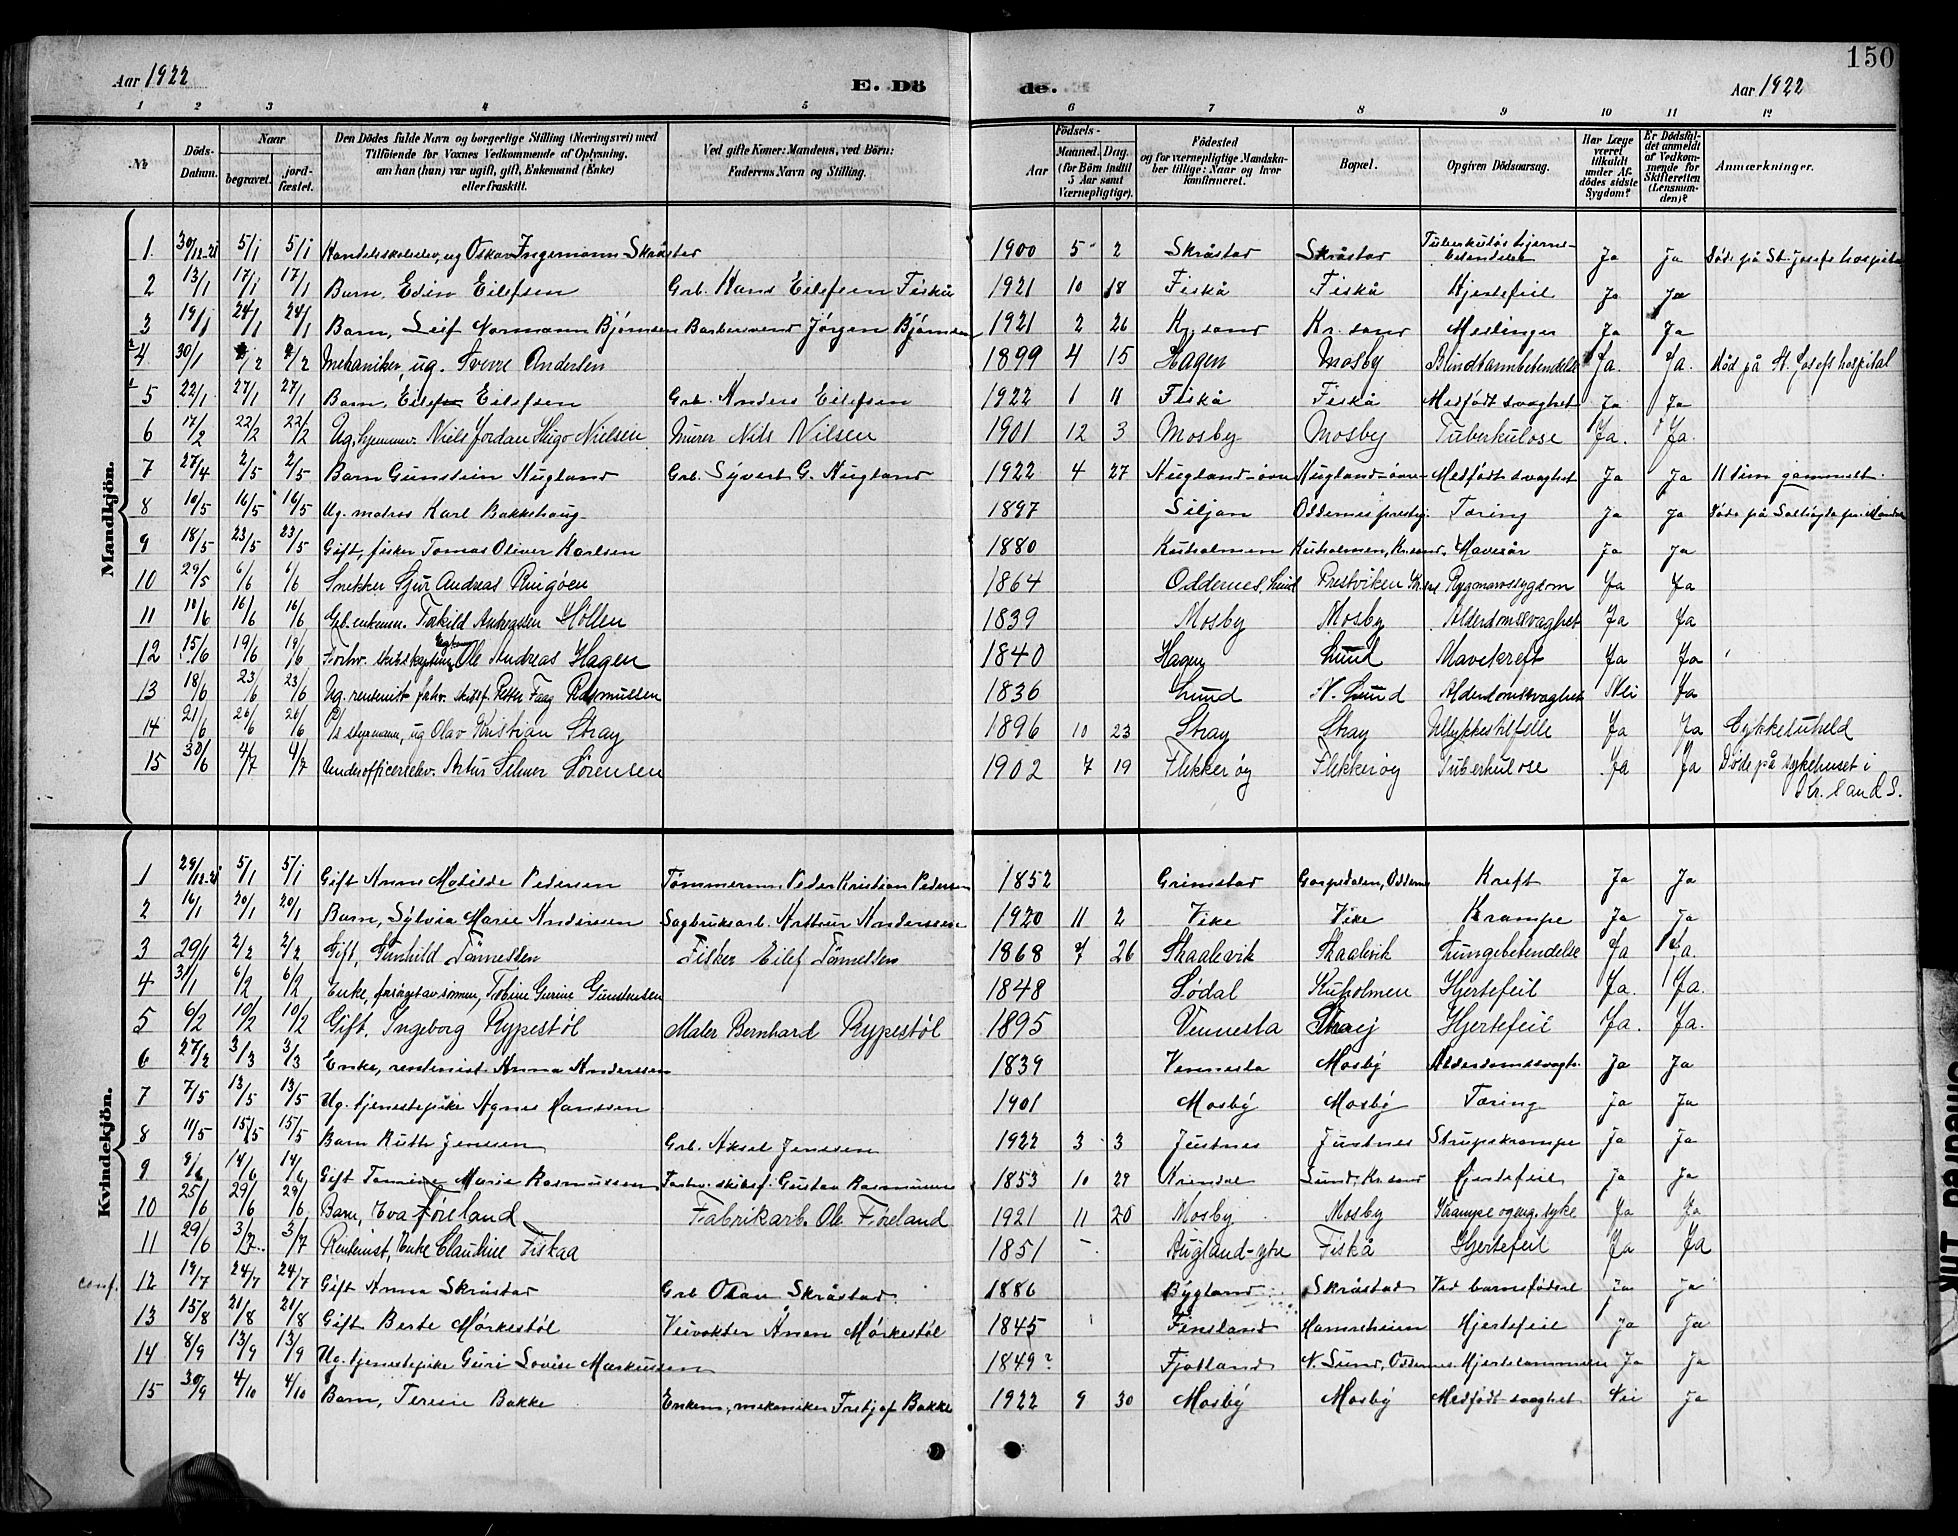 150
Aar 1922 E. Dö de. Aar 1922
1 2 3 4 5 6 7 8 9 10 11 12
№ Döds-Datum. Naar begravet. jordfæstet. Den Dödes fulde Navn og borgerlige Stilling (Næringsvei) med Tilföiende for Voxnes Vedkommende af Oplysning, om han (hun) var ugift, gift, Enkemand (Enke) eller fraskilt. Ved gifte Koner: Mandens, ved Börn: Faderens Navn og Stilling. Födsels- Aar Maaned. Dag. (for Börn indtil 5 Aar samt Værnepligtige). Födested og for værnepligtige Mandskaber tillige: Naar og hvor konfirmeret. Bopæl. Opgiven Dödsaarsag. Har Læge været tilkaldt under Afdödes sidste Sygdom? Er Dödsfaldet anmeldt af Vedkommende for Skifteretten (Lensmanden)? Anmærkninger.
Mandkjön.
1 30/12-21 5/1 5/1 Handelsskoleelev, ug Oskar Ingemann Skråstar 1900 5 2 Skråstar Skråstar Tuberkuløs hjernebetendelse Ja Ja Døde på St. Josefs hospital
2 13/1 17/1 17/1 Barn, Edin Eilefsen Grb. Hans Eilefsen Fiskå 1921 10 18 Fiskå Fiskå Hjertefeil Ja Ja
3 19/1 24/1 24/1 Barn, Leif Normann Bjørnsen Barbersvend Jørgen Bjørnsen 1921 2 26 Kr.sand Kr.sand Meslinger Ja Ja
4 30/1 2/2 2/2 Mekaniker, ug. Sverre Andersen 1899 4 15 Hagen Mosby Blindtarmbetendelse Ja. Ja. Død på St. Josefs hospital
5 22/1 27/1 27/1 Barn, Eilef Eilefsen Grb. Anders Eilefsen 1922 1 11 Fiskå Fiskå Medfødt svaghet Ja Ja
6 17/2 22/2 22/2 Ug. hjemmev. Niels Jordan Hugo Nielsen Murer Nils Nilsen 1901 12 3 Mosby Mosby Tuberkulose Ja. Ja.
7 27/4 2/5 2/5 Barn Gunstein Augland Grb. Syvert G. Augland 1922 4 27 Augland-øvre Augland-øvre Medfødt svaghet Ja Ja 11 tim gammelt.
8 10/5 16/5 16/5 Ug. matros Karl Bakkehaug 1897 Siljan Oddernes prestg. Tæring Ja Ja Døde på pr. Mandal
9 18/5 23/5 23/5 Gift, fisker Tomas Oliver Karlsen 1880 Kuholmen Kuholmen, Kr.sand, Mavesår Ja Ja
10 29/5 6/6 6/6 Snekker Sjur Andreas Ringøen 1864 Oddernes, Lund Prestviken Rygmarvssygdom Ja Ja
11 10/6 16/6 16/6 Grb. enkem. Terkild Andreassen Hollen 1839 Mosby Mosby Alderdomssvaghet Ja Ja
12 15/6 19/6 19/6 Forhv. Ole Andreas Hagen 1840 Hagen Lund Mavekreft Ja Ja
13 18/6 23/6 23/6 Ug. rentenist forhv. skibsf. Peter Faag Rasmussen 1836 Lund N. Lund Alderdomssvaghet Nei Ja
14 21/6 26/6 26/6 styrmann, ug Olav Kristian Stray 1896 10 23 Stray Stray Ulykkestilfelle Ja Ja Cykkeluheld
15 30/6 4/7 4/7 Underofficerselev. Artur Selmer Sørensen 1902 7 19 Flekkerøy Flekkerøy Tuberkulose Ja Ja Døde på sykehuset i
Kr.sand S.
Kvindekjön.
1 29/12-21 5/1 5/1 Gift Anne Matilde Pedersen Tømmerm. Peder Kristian Pedersen 1852 Grimstad Gaspedalen, Oddernes Kreft Ja Ja
2 16/1 20/1 20/1 Barn, Sylvia Marie Andersen Sagbruksarb. Arthur Anderssen 1920 11 2 Vike Vike Krampe Ja Ja
3 29/1 2/2 2/2 Gift, Gunhild Tønnessen Fisker Eilef Tønnessen 1868 7 26 Skaalevik Skaalevik Lungebetendelse Ja Ja.
4 31/1 6/2 6/2 Enke, forsørget av sønnen, Tobine Gurine Gundersen 1848 Sødal Kuholmen Hjertefeil Ja. Ja.
5 6/2 10/2 10/2 Gift, Ingeborg Rypestøl Maler Bernhard Rypestøl 1895 Vennesla Strai Hjertefeil Ja. Ja.
6 27/2 3/3 3/3 Enke, rentenist Anna Anderssen 1839 Vennesla Mosby Alderdomssvagh. Ja Ja
7 7/5 13/5 13/5 Ug. tjenestepike Agnes Hanssen 1901 Mosby Mosby Tæring Ja Ja
8 11/5 15/5 15/5 Barn Ruth Jenssen Grb. Aksel Jenssen 1922 3 3 Justnes Justnes Strupekrampe Ja Ja
9 9/6 14/6 14/6 Gift Tomine Marie Rasmussen Forhv. skibsf. Gustav Rasmussen 1853 10 29 Lund, Kr.sand Hjertefeil Ja Ja
10 25/6 29/6 29/6 Barn, Eva Føreland Fabrikarb. Ole Føreland 1921 11 20 Mosby Mosby Krampe og eng. syke Ja Ja
11 29/6 3/7 3/7 Rentenist, Enke Claudine Fiskaa 1851 - Augland-ytre Fiskå Hjertefeil Ja Ja
conf. 12 19/7 24/7 24/7 Gift Anna Skråstad Grb Olav Skråstad 1886 Bygland Skråstad Ved barnefødsel Ja Ja
13 15/8 21/8 21/8 Gift Berte Mørkestøl Veivokter Ånen Mørkestøl 1845 Finsland Hamreheien Hjertefeil Ja Ja
14 8/9 13/9 13/9 Ug. tjenestepike Guri Lovise Markussen 1849? Fjotland N. Lund, Oddernes Hjertelammelse Ja Ja
15 30/9 4/10 4/10 Barn, Terese Bakke Enkem., mekaniker Fritjof Bakke 1922 9 30 Mosby Mosby Medfødt svaghet Nei Ja